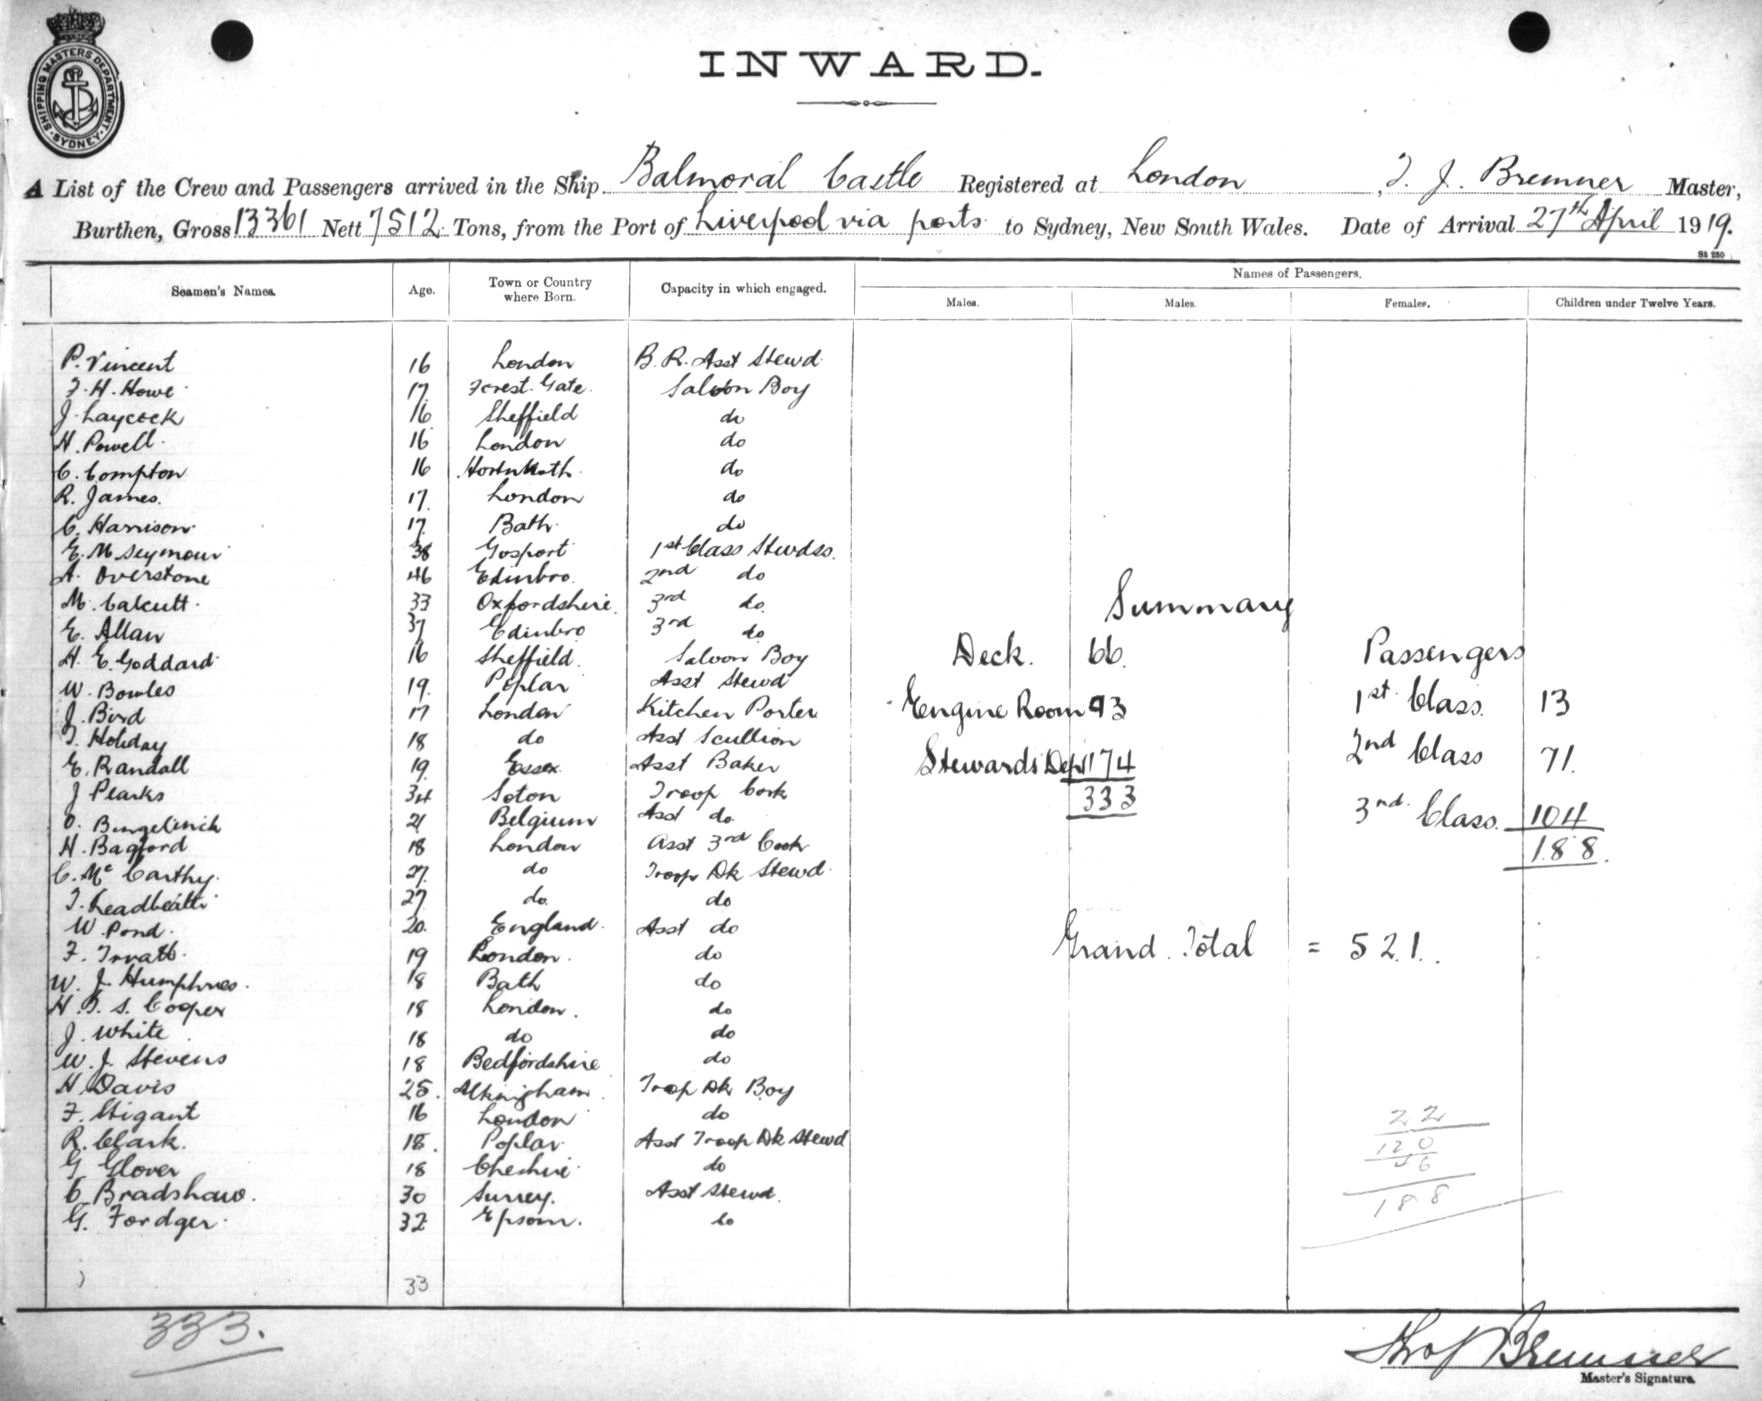 SHIPPING MASTERS DEPARTMENT. SYDNEY
INWARD.
A List of the Crew and Passengers arrived in the Ship Balmoral Castle Registered at London, T. J. Bremner Master,
Burthen, Gross 13361 Nett 7512 Tons, from the Port of Liverpool via ports to Sydney, New South Wales. Date of Arrival 27th April 1919.
St 250
Seamen's Names. Age. Town or Country where Born. Capacity in which engaged. Names of Passengers.
Males. Males. Females. Children under Twelve Years.
P. Vincent 16 London B. R. Asst Stewd
F. H. Howe 17 Forest Gate Saloon Boy
J. Laycock 16 Sheffield do
H. Powell 16 London do
C. Compton 16 do
R. James 17 London do
C. Harrison 17 Bath do
E. M Seymour 38 Gosport 1st Class Stewdss.
A. Overstone 46 Edinbro. 2nd do
M. Calcutt 33 Oxfordshire 3rd do
E. Allan 37 Edinbro 3rd do
H. E. Goddard 16 Sheffield Saloon Boy
W. Bowles 19 Poplar Asst Stewd
J. Bird 17 London Kitchen Porter
T. Holiday 18 do Asst Scullion
E. Randall 19 Essex Asst Baker
J Pearks 34 Soton Troop Cook
O. 21 Belgium Asst do
H. Bagford 18 London Asst 3rd Cook
C. McCarthy 27 do Troop Dk Stewd
T. Leadbeatter 27 do do
W. Pond 20 England Asst do
F. 19 London do
W. J. Humphries 18 Bath do
H. B. S. Cooper 18 London do
J. White 18 do do
W. J. Stevens 18 Bedfordshire do
H Davis 25 Troop Dk Boy
F. Stigant 16 London do
R. Clark 18 Poplar Asst Troop Dk Stewd
G Glover 18 Cheshire do
C Bradshaw 30 Surrey Asst Stewd
G. Fordger 32 Epsom do
33
333.
Summary
Deck. 66.
Engine Room 93
Stewards Dept 174
333
Passengers
1st Class 13
2nd Class 71.
3rd Class 104
188.
Grand Total = 521.
22
120
46
188
Thos J Bremner
Master's Signature.